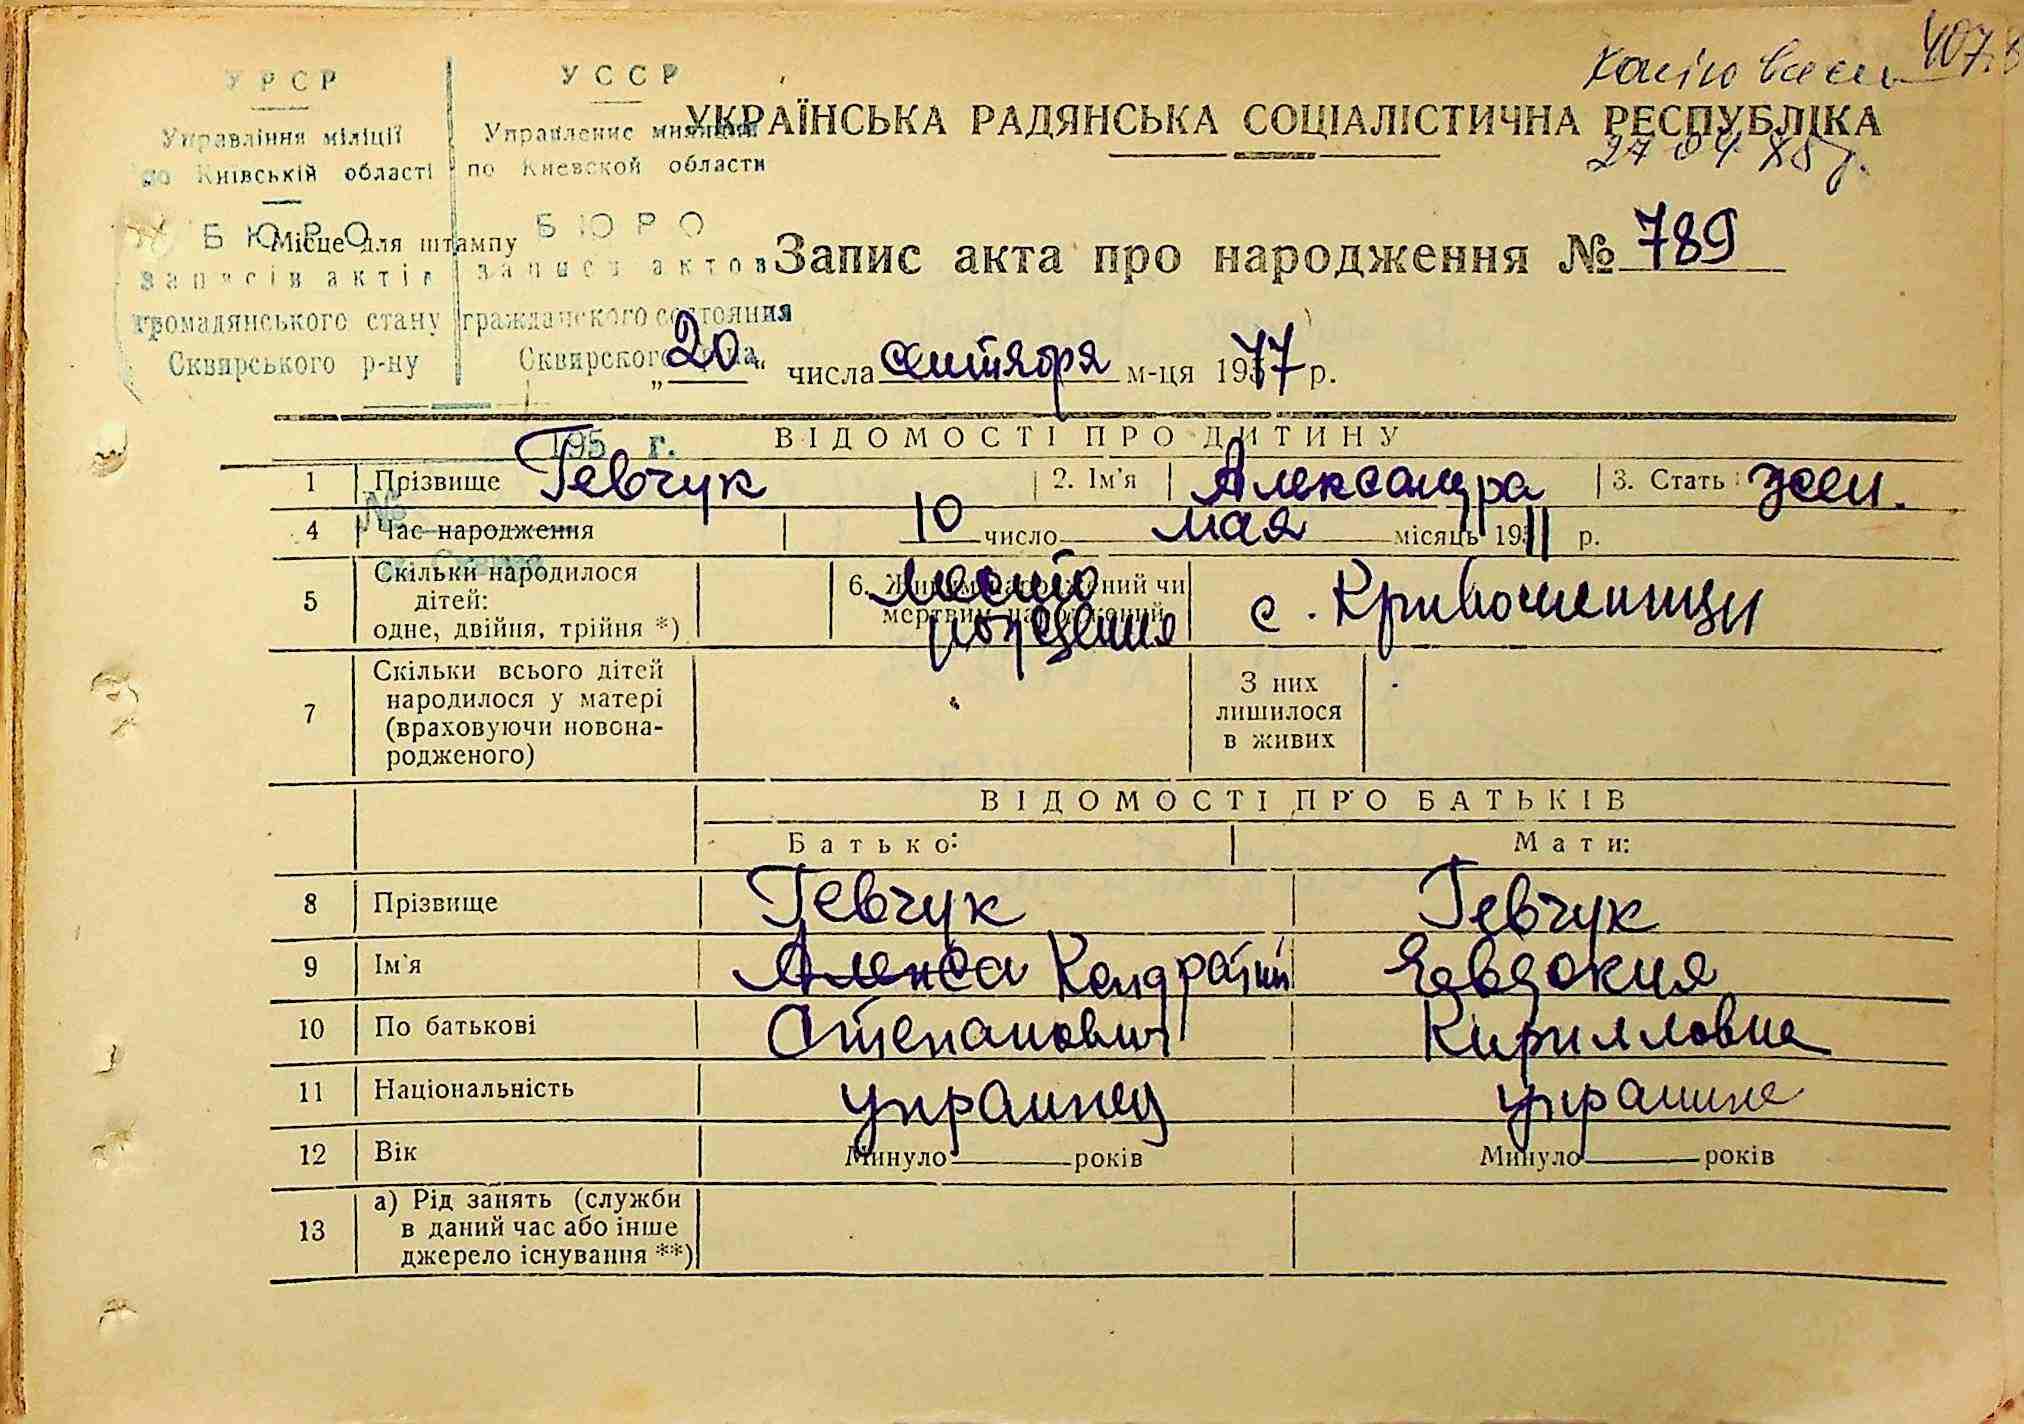 УРСР
Управління міліції
по Київській області
БЮРО
записів актів
громадянського стану
Сквирського р-ну
УССР
Управление милиции
по Киевской области
БЮРО
записи актов
гражданского состояния
Сквирского р-на
195 г.
№
407
27 04
УКРАЇНСЬКА РАДЯНСЬКА СОЦІАЛІСТИЧНА РЕСПУБЛІКА
Місце для штампу
Запис акта про народження № 789
„20“ числа сентября м-ця 1977 р.
ВІДОМОСТІ ПРО ДИТИНУ
1 Прізвище Гевчук 2. Ім'я Александра 3. Стать жен.
4 Час народження 10 число мая місяць 1911 р.
5 Скільки народилося
дітей:
одне, двійня, трійня *)
6. Живим народжений чи
мертвим народжений
Место
рождения
с. Кривошеинцы
7 Скільки всього дітей
народилося у матері
(враховуючи новона-
родженого)
З них
лишилося
в живих
ВІДОМОСТІ ПРО БАТЬКІВ
Батько: Мати:
8 Прізвище Гевчук Гевчук
9 Ім'я Алекса Кондратий Евдокия
10 По батькові Степанович Кирилловна
11 Національність украинец украинка
12 Вік Минуло років Минуло років
13 а) Рід занять (служби
в даний час або інше
джерело існування **)